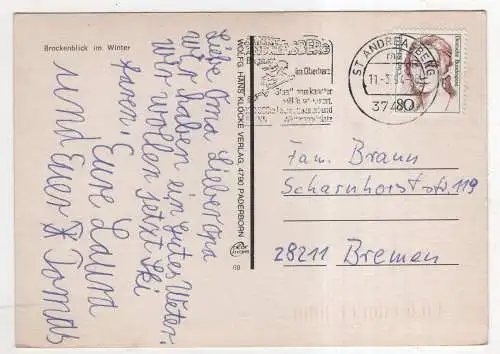 Brockenblick im Winter
Liebe Oma Lieberopa
wir haben ein gutes Weter.
Wir wollen jetzt Ski
faren. Eure Laura
und Euer Tomas
WOLFG. HANS KLOCKE VERLAG 4790 PADERBORN
69
ST ANDREASBERG
im Oberharz
80
Deutsche Bundespost
Fam. Braun
Scharnhorststr. 119
28211 Bremen